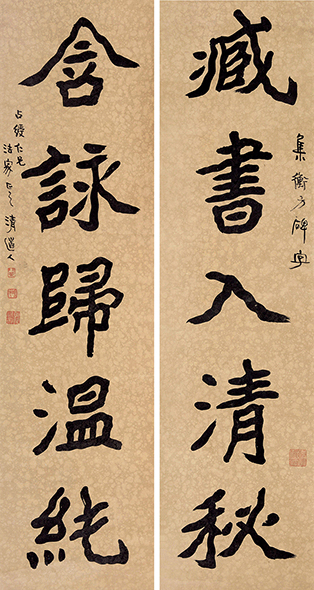 集衡方碑字
臧書入清秋
含詠歸温純
占綬仁兄
法家正之 清道人